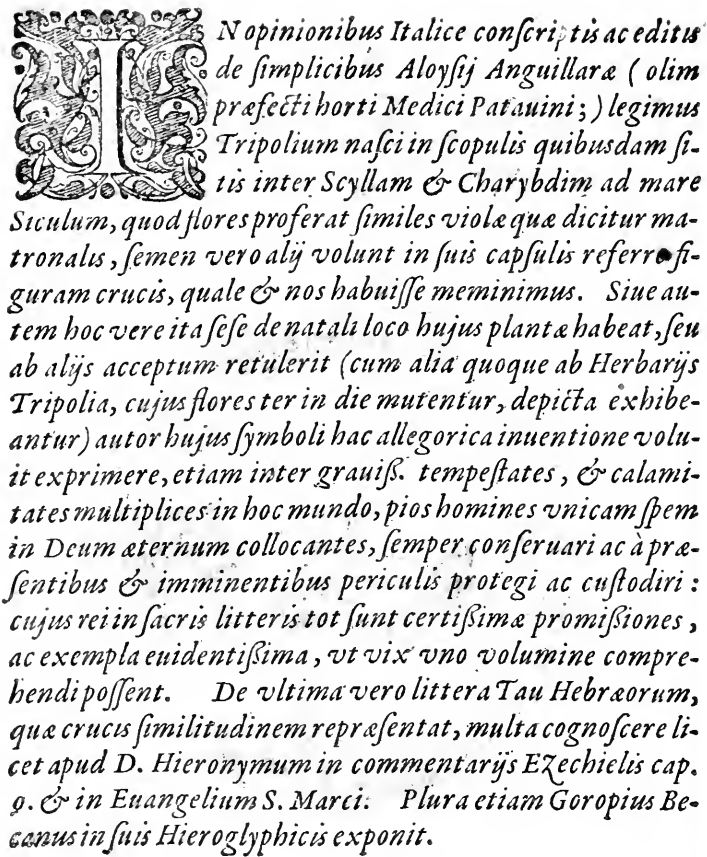 IN opinionibus Italice conſcriptis ac editis
de ſimplicibus Aloyſij Anguillaræ ( olim
præfecti horti Medici Patauini ; ) legimus
Tripolium naſci in ſcopulis quibusdam ſi-
tis inter Scyllam & Charybdim ad mare
Siculum, quod flores proferat ſimiles violæ quæ dicitur ma-
tronalis, ſemen vero alij volunt in ſuis capſulis referre fi-
guram crucis, quale & nos habuiſſe meminimus. Siue au-
tem hoc vere ita ſeſe de natali loco hujus plantæ habeat, ſeu
ab alijs acceptum retulerit (cum alia quoque ab Herbarijs
Tripolia, cujus flores ter in die mutentur, depicta exhibe-
antur) autor hujus ſymboli hac allegorica inuentione volu-
it exprimere, etiam inter grauiß. tempeſtates, & calami-
tates multiplices in hoc mundo, pios homines vnicam ſpem
in Deum æternum collocantes, ſemper conſeruari ac à præ-
ſentibus & imminentibus periculis protegi ac cuſtodiri :
cujus rei in ſacris litteris tot ſunt certißimæ promißiones ,
ac exempla euidentißima, vt vix vno volumine compre-
hendi poſſent. De vltima vero littera Tau Hebræorum,
quæ crucis ſimilitudinem repræſentat, multa cognoſcere li-
cet apud D. Hieronymum in commentarijs Ezechielis cap.
9. & in Euangelium S. Marci. Plura etiam Goropius Be-
canus in ſuis Hieroglyphicis exponit.